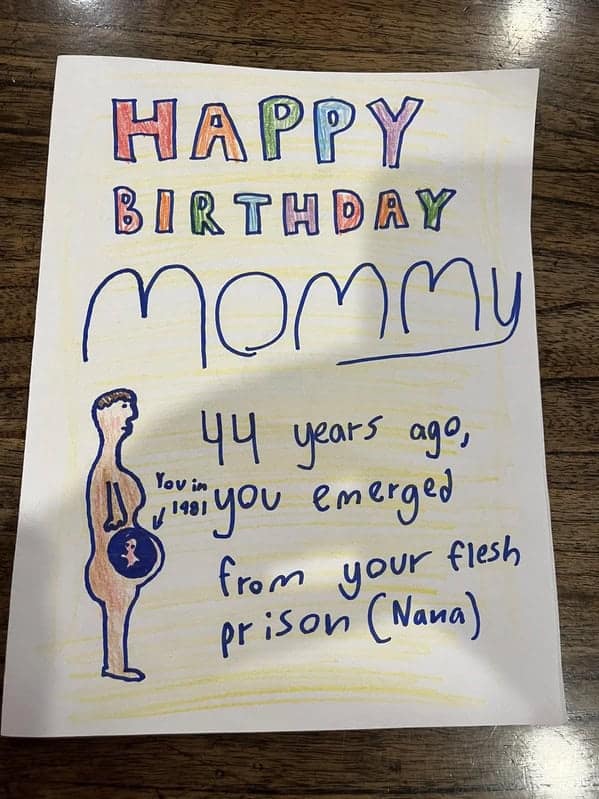 HAPPY
BIRTHDAY
MOMMY
44 years ago,
You in
1981
you emerged
from your flesh
prison (Nana)